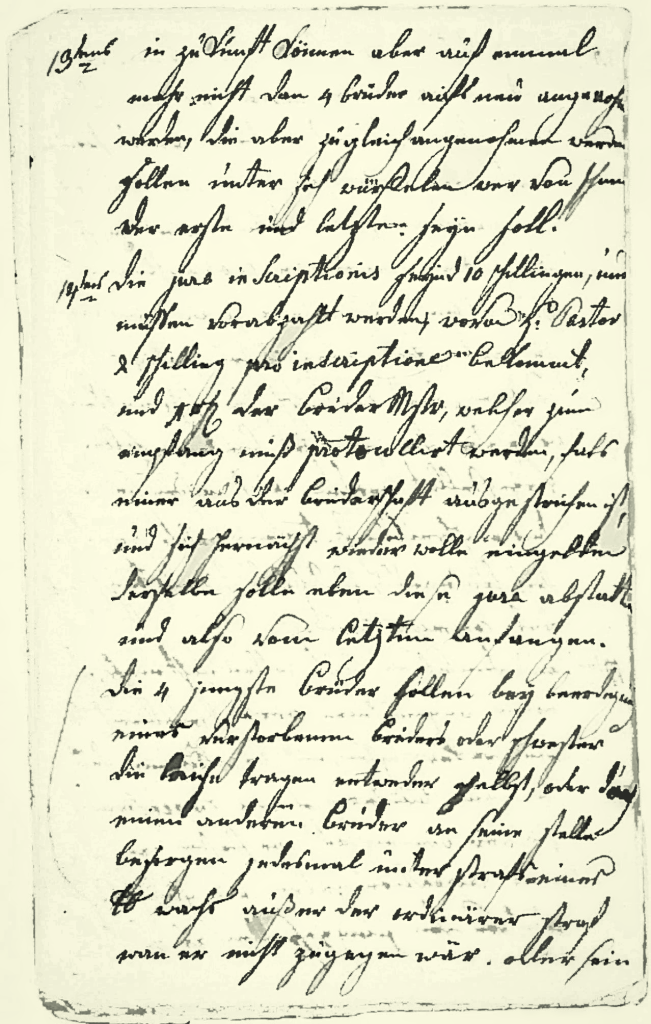 13tens in zukunft können aber auf einmal
mehr nicht dan 4 brüder aufs neu angenohm
werden, die aber zugleich angenohmen werden
sollen unter sich würfelen wer von ihnen
der erste und letzte seyn soll.
14tens die jura inscriptionis seynd 10 schillingen, und
müssen vorabzahlt werden, wovon H. Pastor
2 schilling pro inscriptione bekommt,
und der brüder Mstr, welcher zum
empfang muß protocollirt werden, fals
einer aus der bruderschafft ausgestrichen ist,
und sich hernächst wieder wolle eingeben
derselbe solle eben diese jura abstatten
und also vom letzten anfangen.
die 4 jungste brüder sollen bey beerdigung
eines verstorbenen bruders oder schwester
die leiche tragen entweder selbst, oder durch
einen anderen bruder an seine stelle
besorgen jedesmal unter straf eines
lb wachs außer der ordinärer straf
wan er nicht zugegen wär. oder sein